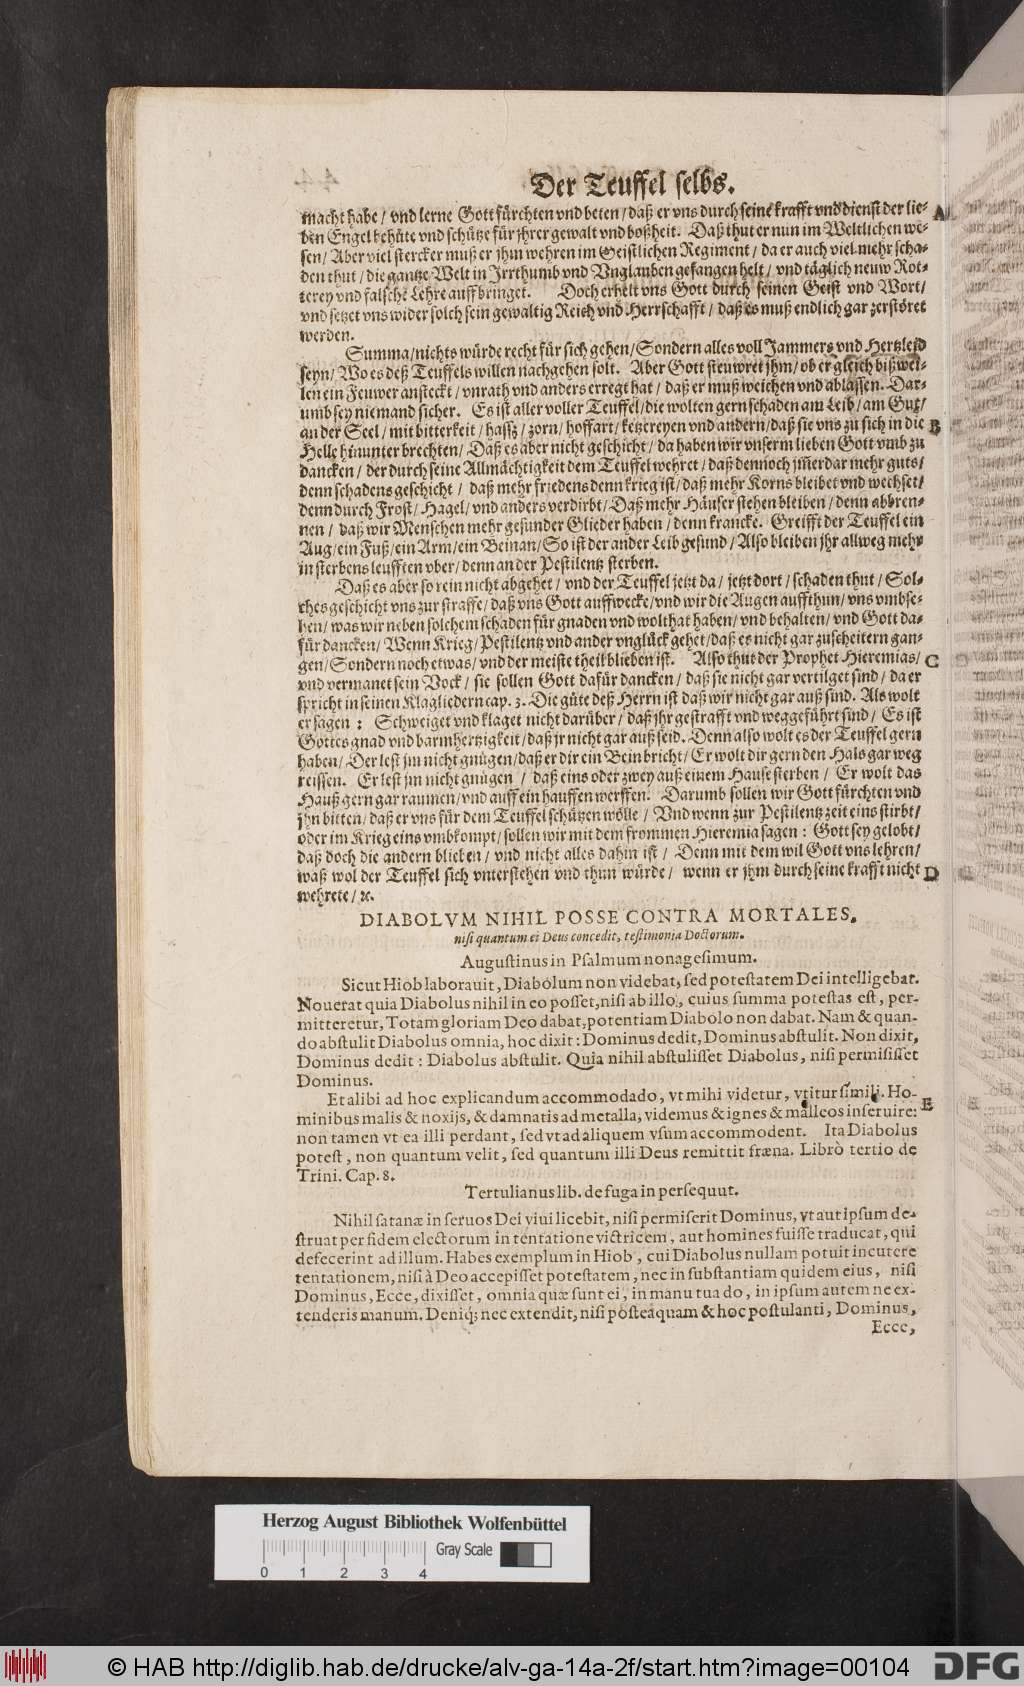 Der Teuffel selbs.
macht habe / vnd lerne Gott fürchten vnd beten / daß er vns durch seine krafft vnd dienst der lie- A
ben Engel behüte vnd schütze für jhrer gewalt vnd boßheit. Daß thut er nun im Weltlichen we-
sen / Aber viel stercker muß er jhm wehren im Geistlichen Regiment / da er auch viel mehr scha-
den thut / die gantze Welt in Irrthumb vnd Vnglauben gefangen helt / vnd täglich neuw Rot-
terey vnd falsche Lehre auffbringet. Doch erhelt vns Gott durch seinen Geist vnd Wort /
vnd setzet vns wider solch sein gewaltig Reich vnd Herrschafft / daß es muß endlich gar zerstöret
werden.
Summa / nichts würde recht für sich gehen / Sondern alles voll Jammers vnd Hertzleid
seyn / Wo es deß Teuffels willen nachgehen solt. Aber Gott steuwret jhm / ob er gleich bißwei-
len ein Feuwer ansteckt / vnrath vnd anders erregt hat / daß er muß weichen vnd ablassen. Dar-
umb sey niemand sicher. Es ist aller voller Teuffel / die wolten gern schaden am Leib / am Gut /
an der Seel / mit bitterkeit / hassz / zorn / hoffart / ketzereyen vnd andern / daß sie vns zu sich in die B
Helle hinunter brechten / Daß es aber nicht geschicht / da haben wir vnserm lieben Gott vmb zu
dancken / der durch seine Allmächtigkeit dem Teuffel wehret / daß dennoch jm̃erdar mehr guts /
denn schadens geschicht / daß mehr friedens denn krieg ist / daß mehr Korns bleibet vnd wechset /
denn durch Frost / Hagel / vnd anders verdirbt / Daß mehr Häuser stehen bleiben / denn abbren-
nen / daß wir Menschen mehr gesunder Glieder haben / denn krancke. Greifft der Teuffel ein
Aug / ein Fuß / ein Arm / ein Bein an / So ist der ander Leib gesund / Also bleiben jhr allweg mehr
in sterbens leufften vber / denn an der Pestilentz sterben.
Daß es aber so rein nicht abgehet / vnd der Teuffel jetzt da / jetzt dort / schaden thut / Sol-
ches geschicht vns zur straffe / daß vns Gott auffwecke / vnd wir die Augen auffthun / vns vmbse-
hen / was wir neben solchem schaden für gnaden vnd wolthat haben / vnd behalten / vnd Gott da-
für dancken / Wenn Krieg / Pestilentz vnd ander vnglück gehet / daß es nicht gar zuscheitern gan-
gen / Sondern noch etwas / vnd der meiste theil blieben ist. Also thut der Prophet Hieremias / C
vnd vermanet sein Vock / sie sollen Gott dafür dancken / daß sie nicht gar vertilget sind / da er
spricht in seinen Klagliedern cap. 3. Die güte deß Herrn ist daß wir nicht gar auß sind. Als wolt
er sagen : Schweiget vnd klaget nicht darüber / daß jhr gestrafft vnd weggeführt sind / Es ist
Gottes gnad vnd barmhertzigkeit / daß jr nicht gar auß seid. Denn also wolt es der Teuffel gern
haben / Der lest jm nicht gnügen / daß er dir ein Bein bricht / Er wolt dir gern den Hals gar weg
reissen. Er lest jm nicht gnügen / daß eins oder zwey auß einem Hause sterben / Er wolt das
Hauß gern gar raumen / vnd auff ein hauffen werffen. Darumb sollen wir Gott fürchten vnd
jhn bitten / daß er vns für dem Teuffel schützen wölle / Vnd wenn zur Pestilentz zeit eins stirbt /
oder im Krieg eins vmbkompt / sollen wir mit dem frommen Hieremia sagen : Gott sey gelobt /
daß doch die andern blieben / vnd nicht alles dahin ist / Denn mit dem wil Gott vns lehren /
waß wol der Teuffel sich vnterstehen vnd thun würde / wenn er jhm durch seine krafft nicht D
wehrete / ꝛc.
DIABOLVM NIHIL POSSE CONTRA MORTALES,
nisi quantum ei Deus concedit, testimonia Doctorum.
Augustinus in Psalmum nonagesimum.
Sicut Hiob laborauit, Diabolum non videbat, sed potestatem Dei intelligebat.
Nouerat quia Diabolus nihil in eo posset, nisi ab illo, cuius summa potestas est, per-
mitteretur, Totam gloriam Deo dabat, potentiam Diabolo non dabat. Nam & quan-
do abstulit Diabolus omnia, hoc dixit : Dominus dedit, Dominus abstulit. Non dixit,
Dominus dedit : Diabolus abstulit. Quia nihil abstulisset Diabolus, nisi permisisset
Dominus.
Et alibi ad hoc explicandum accommodado, vt mihi videtur, vtitur simili. Ho-
minibus malis & noxijs, & damnatis ad metalla, videmus & ignes & malleos inseruire: E
non tamen vt ea illi perdant, sed vt ad aliquem vsum accommodent. Ita Diabolus
potest, non quantum velit, sed quantum illi Deus remittit fræna. Libro tertio de
Trini. Cap. 8.
Tertulianus lib. de fuga in persequut.
Nihil satanæ in seruos Dei viui licebit, nisi permiserit Dominus, vt aut ipsum de-
struat per fidem electorum in tentatione victricem, aut homines fuisse traducat, qui
defecerint ad illum. Habes exemplum in Hiob, cui Diabolus nullam potuit incutere
tentationem, nisi à Deo accepisset potestatem, nec in substantiam quidem eius, nisi
Dominus, Ecce, dixisset, omnia quæ sunt ei, in manu tua do, in ipsum autem ne ex-
tenderis manum. Deniq; nec extendit, nisi posteáquam & hoc postulanti, Dominus,
Ecce,
Herzog August Bibliothek Wolfenbüttel
Gray Scale
0 1 2 3 4
© HAB http://diglib.hab.de/drucke/alv-ga-14a-2f/start.htm?image=00104
DFG